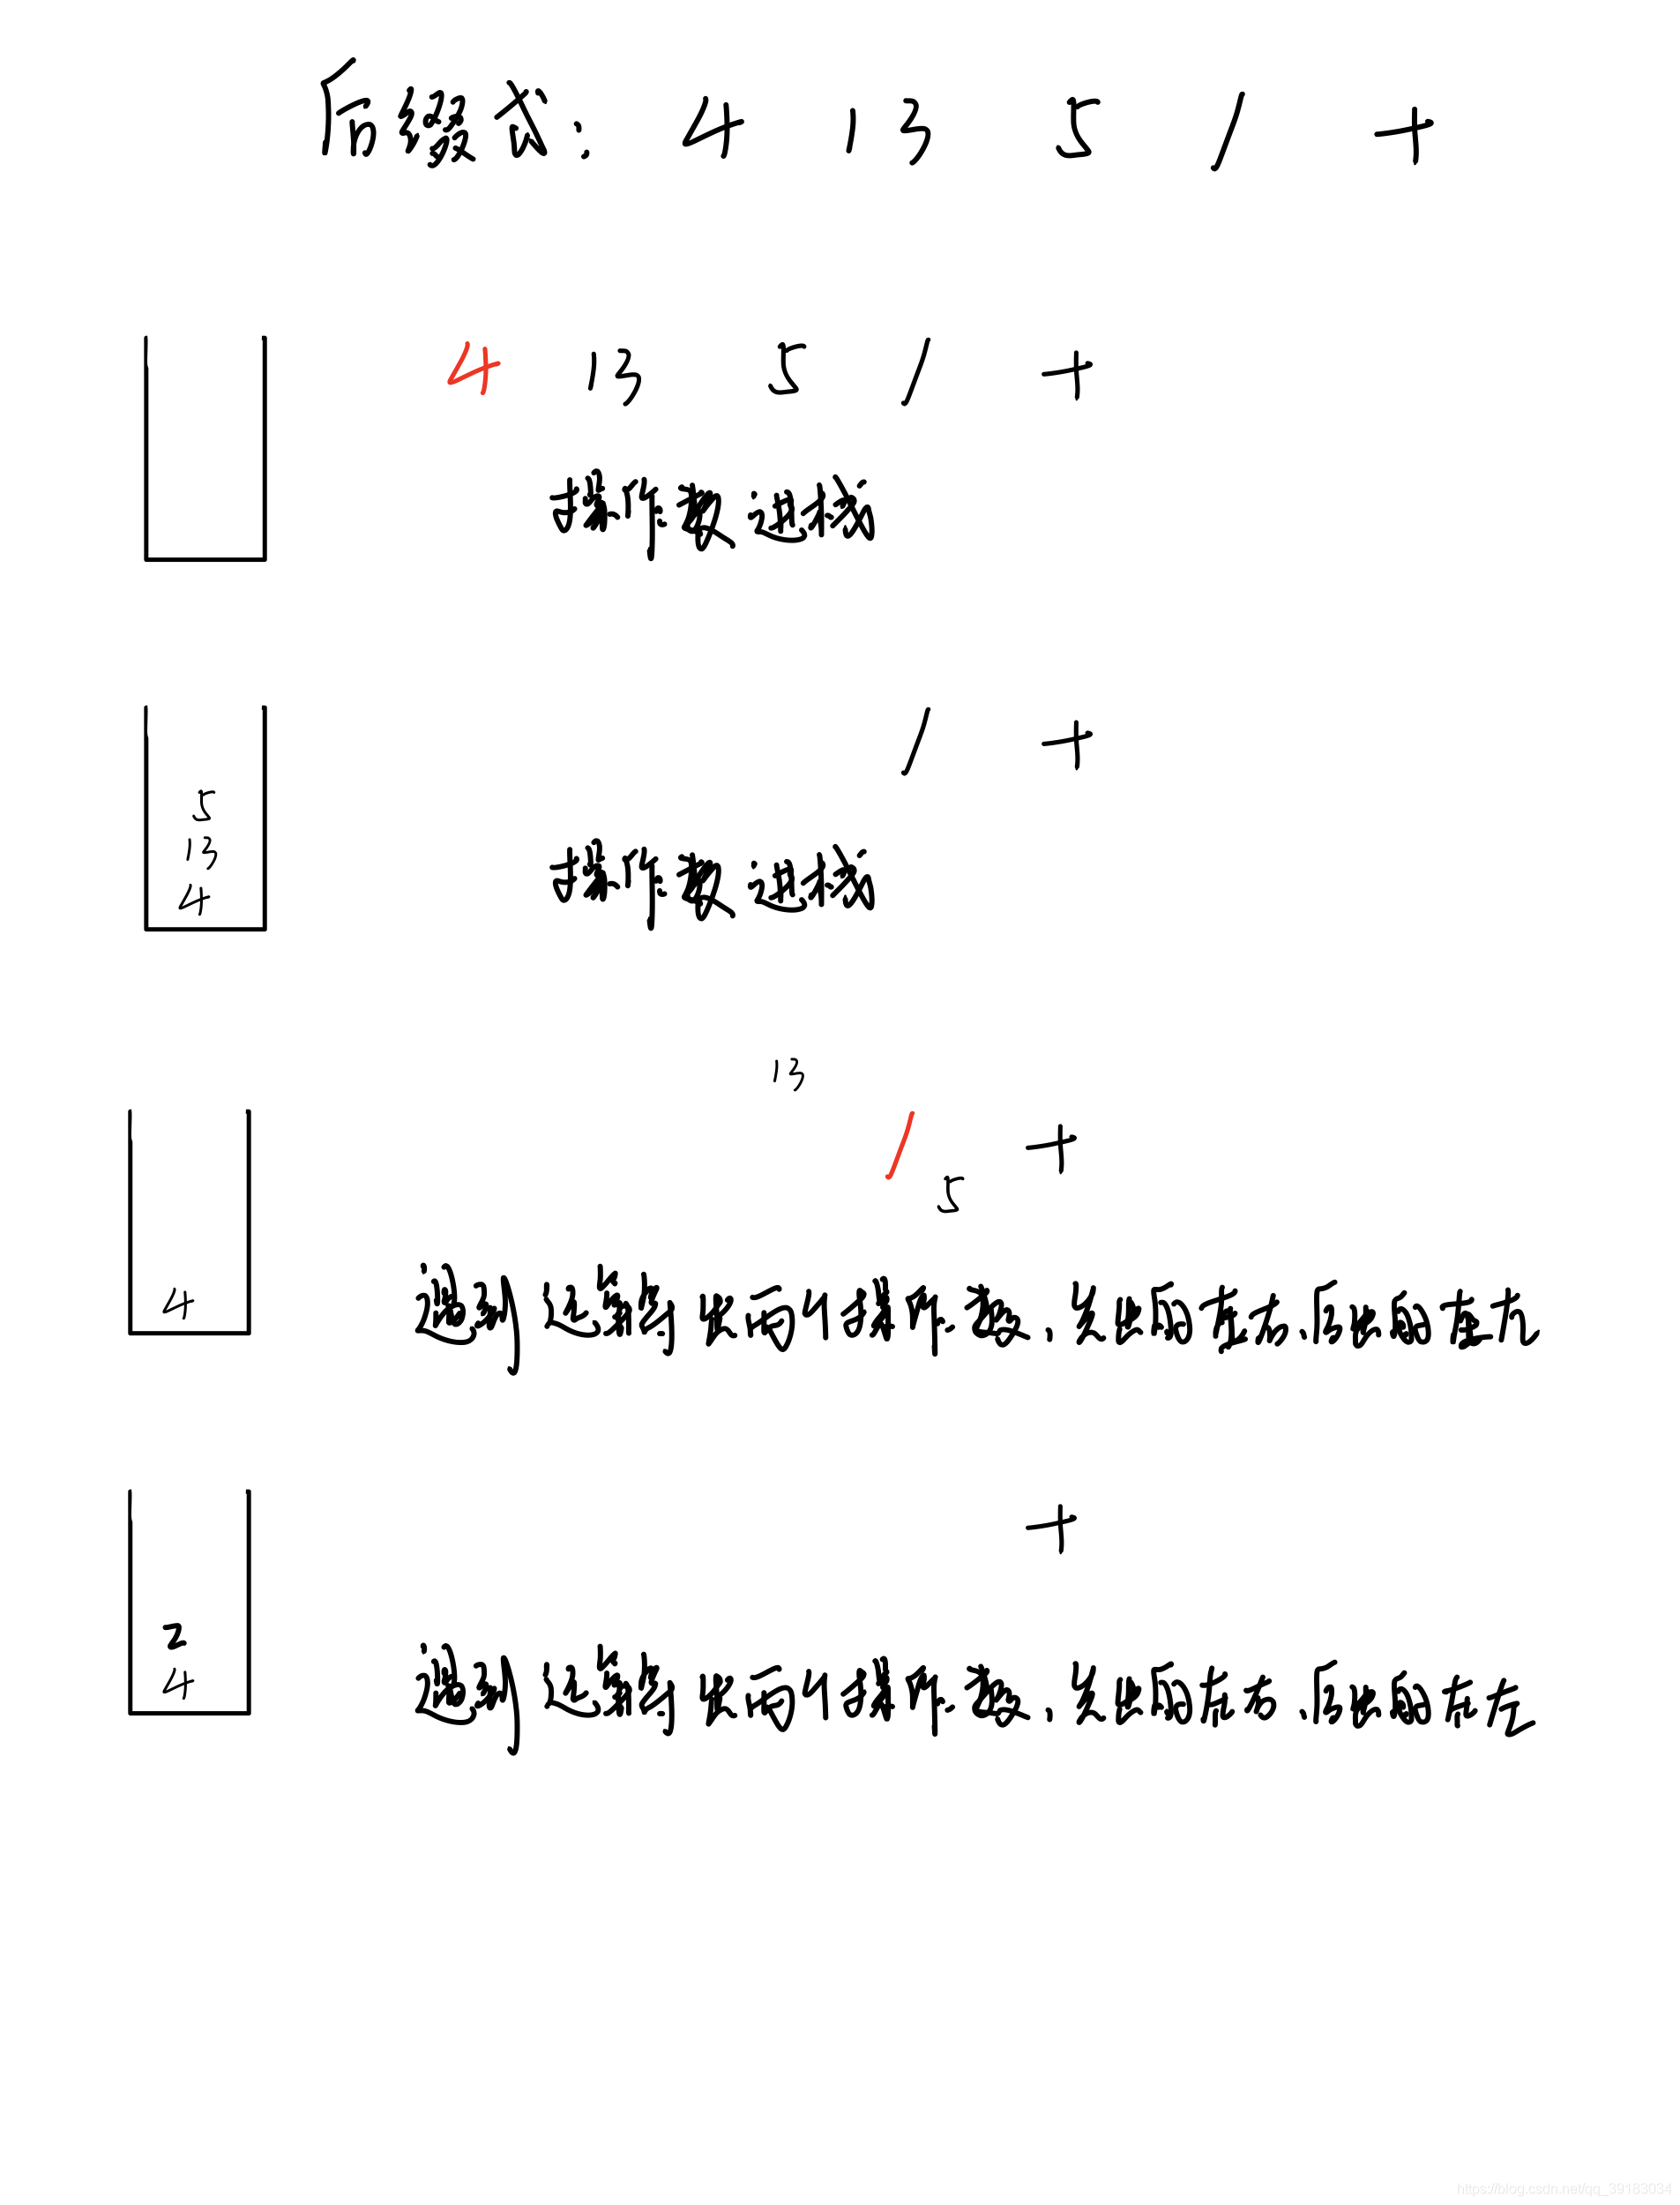 后缀式: 4 13 5 / +
4 13 5 / +
操作数进栈
/ +
5
13
4
操作数进栈
13
/ +
5
4
遇到运算符 取两个操作数.先取的在右.后取的在左
+
2
4
遇到运算符 取两个操作数.先取的在右.后取的在左
https://blog.csdn.net/qq_39183034